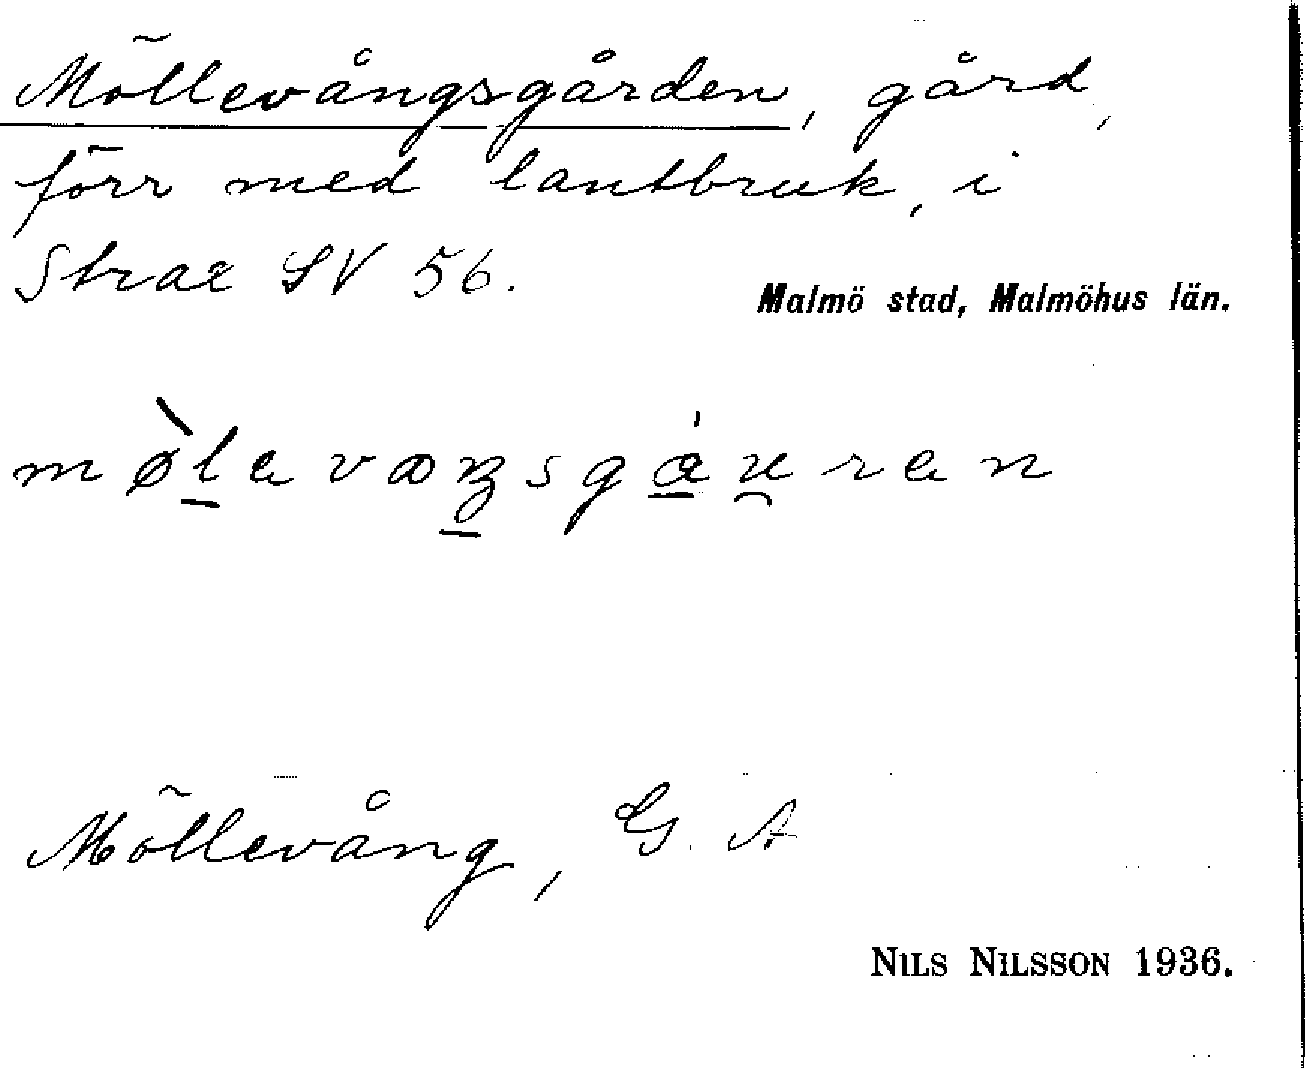 Möllevångsgården, gård,
förr med lantbruk, i
Strae SV 56.
Malmö stad, Malmöhus län.
Möllevång, G. A
NILS NILSSON 1936.